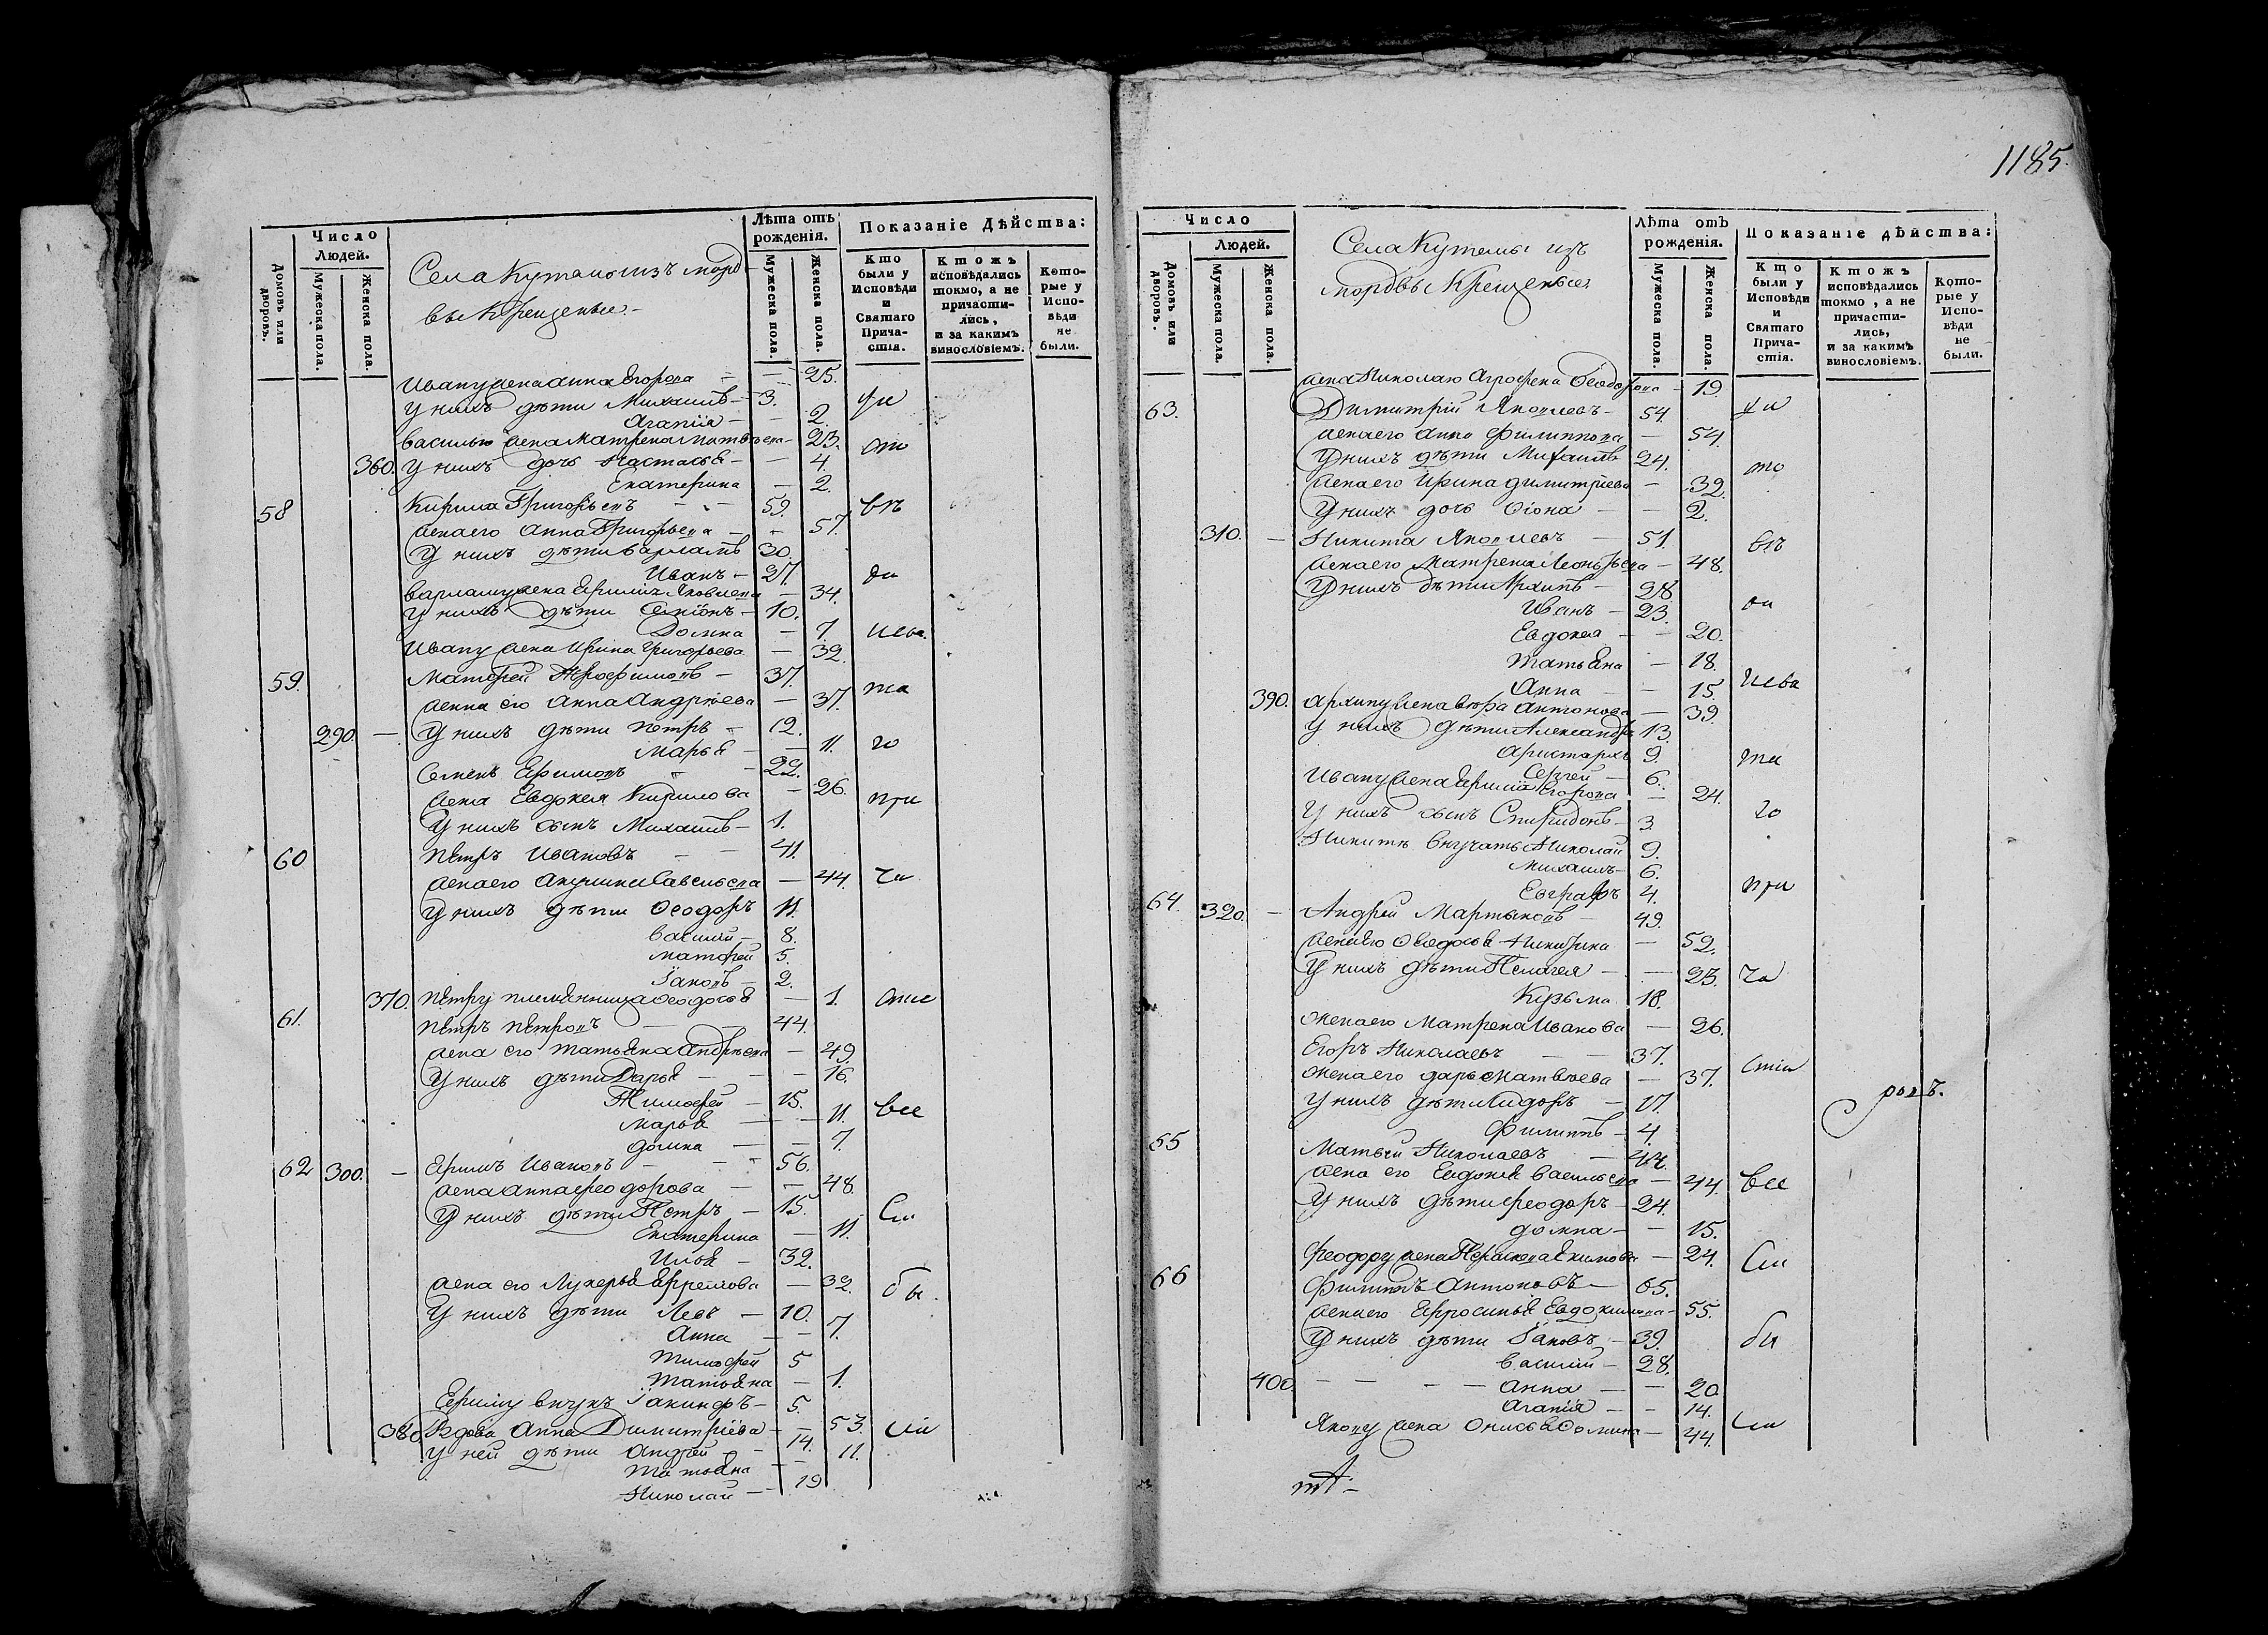 1185.
Число Людей.
Домовъ или дворовъ.
Мужеска пола.
Женска пола.
Села Кутемы изъ морд-
вы крещеные -
Лѣта отъ рожденія.
Мужеска пола.
Женска пола.
Показаніе Дѣйства:
Кто были у Исповѣди и Святаго Причастія.
Ктожъ исповѣдались токмо, а не причастились, и за какимъ винословіемъ.
Которые у Исповѣди не были.
Ивану жена Анна Егорова — 25.
У нихъ дѣти Михаилъ 3.
Агапія — 2.
Василью жена Матрена Матвѣева 23.
360. У нихъ дочь Настасья — 4.
Екатерина — 2.
58 Кирила Григорьевъ 59.
жена его Анна Григорьева — 57.
У нихъ дѣти Варламъ 30.
Иванъ 27.
Варламу жена Ефимія Яковлева — 34.
У нихъ дѣти Семіонъ 10.
Домна — 7.
Ивану жена Ирина Григорьева — 32.
59. Матфей Трофимовъ 37.
жена его Анна Андрѣева — 37.
290. — У нихъ дѣти Петръ 12.
Марья — 11.
Семенъ Ефимовъ 22.
жена Евдокея Кирилова — 26.
У нихъ сынъ Михаилъ 1.
60 Петръ Ивановъ 41.
жена его Акулина Савельева — 44.
У нихъ дѣти Ѳеодоръ 11.
Василій 8.
Матфей 5.
Іаковъ 2.
370. Петру племянница Ѳеодосья — 1.
61. Петръ Петровъ 44.
жена его Татьяна Андрѣева — 49.
У нихъ дѣти Дарья — 16.
Тимофей 15.
Марья — 11.
Домна — 7.
62 300. — Ефимъ Ивановъ 56.
жена Анна Феодорова — 48.
У нихъ дѣти Петръ 15.
Екатерина — 11.
Илья 32.
жена его Лукерья Ефремова — 32.
У нихъ дѣти Левъ 10.
Анна — 7.
Тимофей 5
Татьяна — 1.
Ефиму внукъ Іакинфъ 5.
380 Вдова Анна Димитріева — 53.
У ней дѣти Андрей 14.
Татьяна — 11.
Николай 19
Число Людей.
Домовъ или дворовъ.
Мужеска пола.
Женска пола.
Села Кутемы изъ
мордвы Крещеные
Лѣта отъ рожденія.
Мужеска пола.
Женска пола.
Показаніе дѣйства:
Кто были у Исповѣди и Святаго Причастія.
Ктожъ исповѣдались токмо, а не причастились, и за какимъ винословіемъ.
Которые у Исповѣди не были.
жена Николаю Агрофена Ѳеодорова — 19.
63. Димитрій Яковлевъ 54.
жена его Анна Филиппова — 54.
У нихъ дѣти Михаилъ 24.
жена его Ирина Димитріева — 32.
У нихъ дочь Фіона — 2.
310. — Никита Яковлевъ 51.
жена его Матрена Леонтьева — 48.
У нихъ дѣти Архипъ 28.
Иванъ 23.
Евдокея — 20.
Татьяна — 18.
Анна — 15.
390. Архипу жена Антонова — 39.
У нихъ дѣти Александръ 13.
Аристархъ 9.
Сергей 6.
Ивану жена Ефимія Егорова — 24.
У нихъ сынъ Спиридонъ 3.
Никитѣ внучаты Николай 9.
Михаилъ 6.
Евграфъ 4.
64. 320. — Андрей Мартыновъ 49.
жена его Ѳеодосья Никитина — 52.
У нихъ дѣти Пелагея — 23.
Кузьма 18.
Жена его Матрена Иванова — 26.
Егоръ Николаевъ 37.
Жена его Дарья Матвѣева — 37.
У нихъ дѣти Сидоръ 17.
Филиппъ 4.
65 Матвей Николаевъ 44.
жена его Евдокея Васильева — 44.
У нихъ дѣти Феодоръ 24.
Домна — 15.
Феодору жена Акимова — 24.
66 Филиппъ Антоновъ 65.
жена его Ефросинья Евдокимова — 55.
У нихъ дѣти Іаковъ 39.
Василій 28.
400. — Анна — 20.
Агапія — 14.
Якову жена Онисья Фомина — 44.